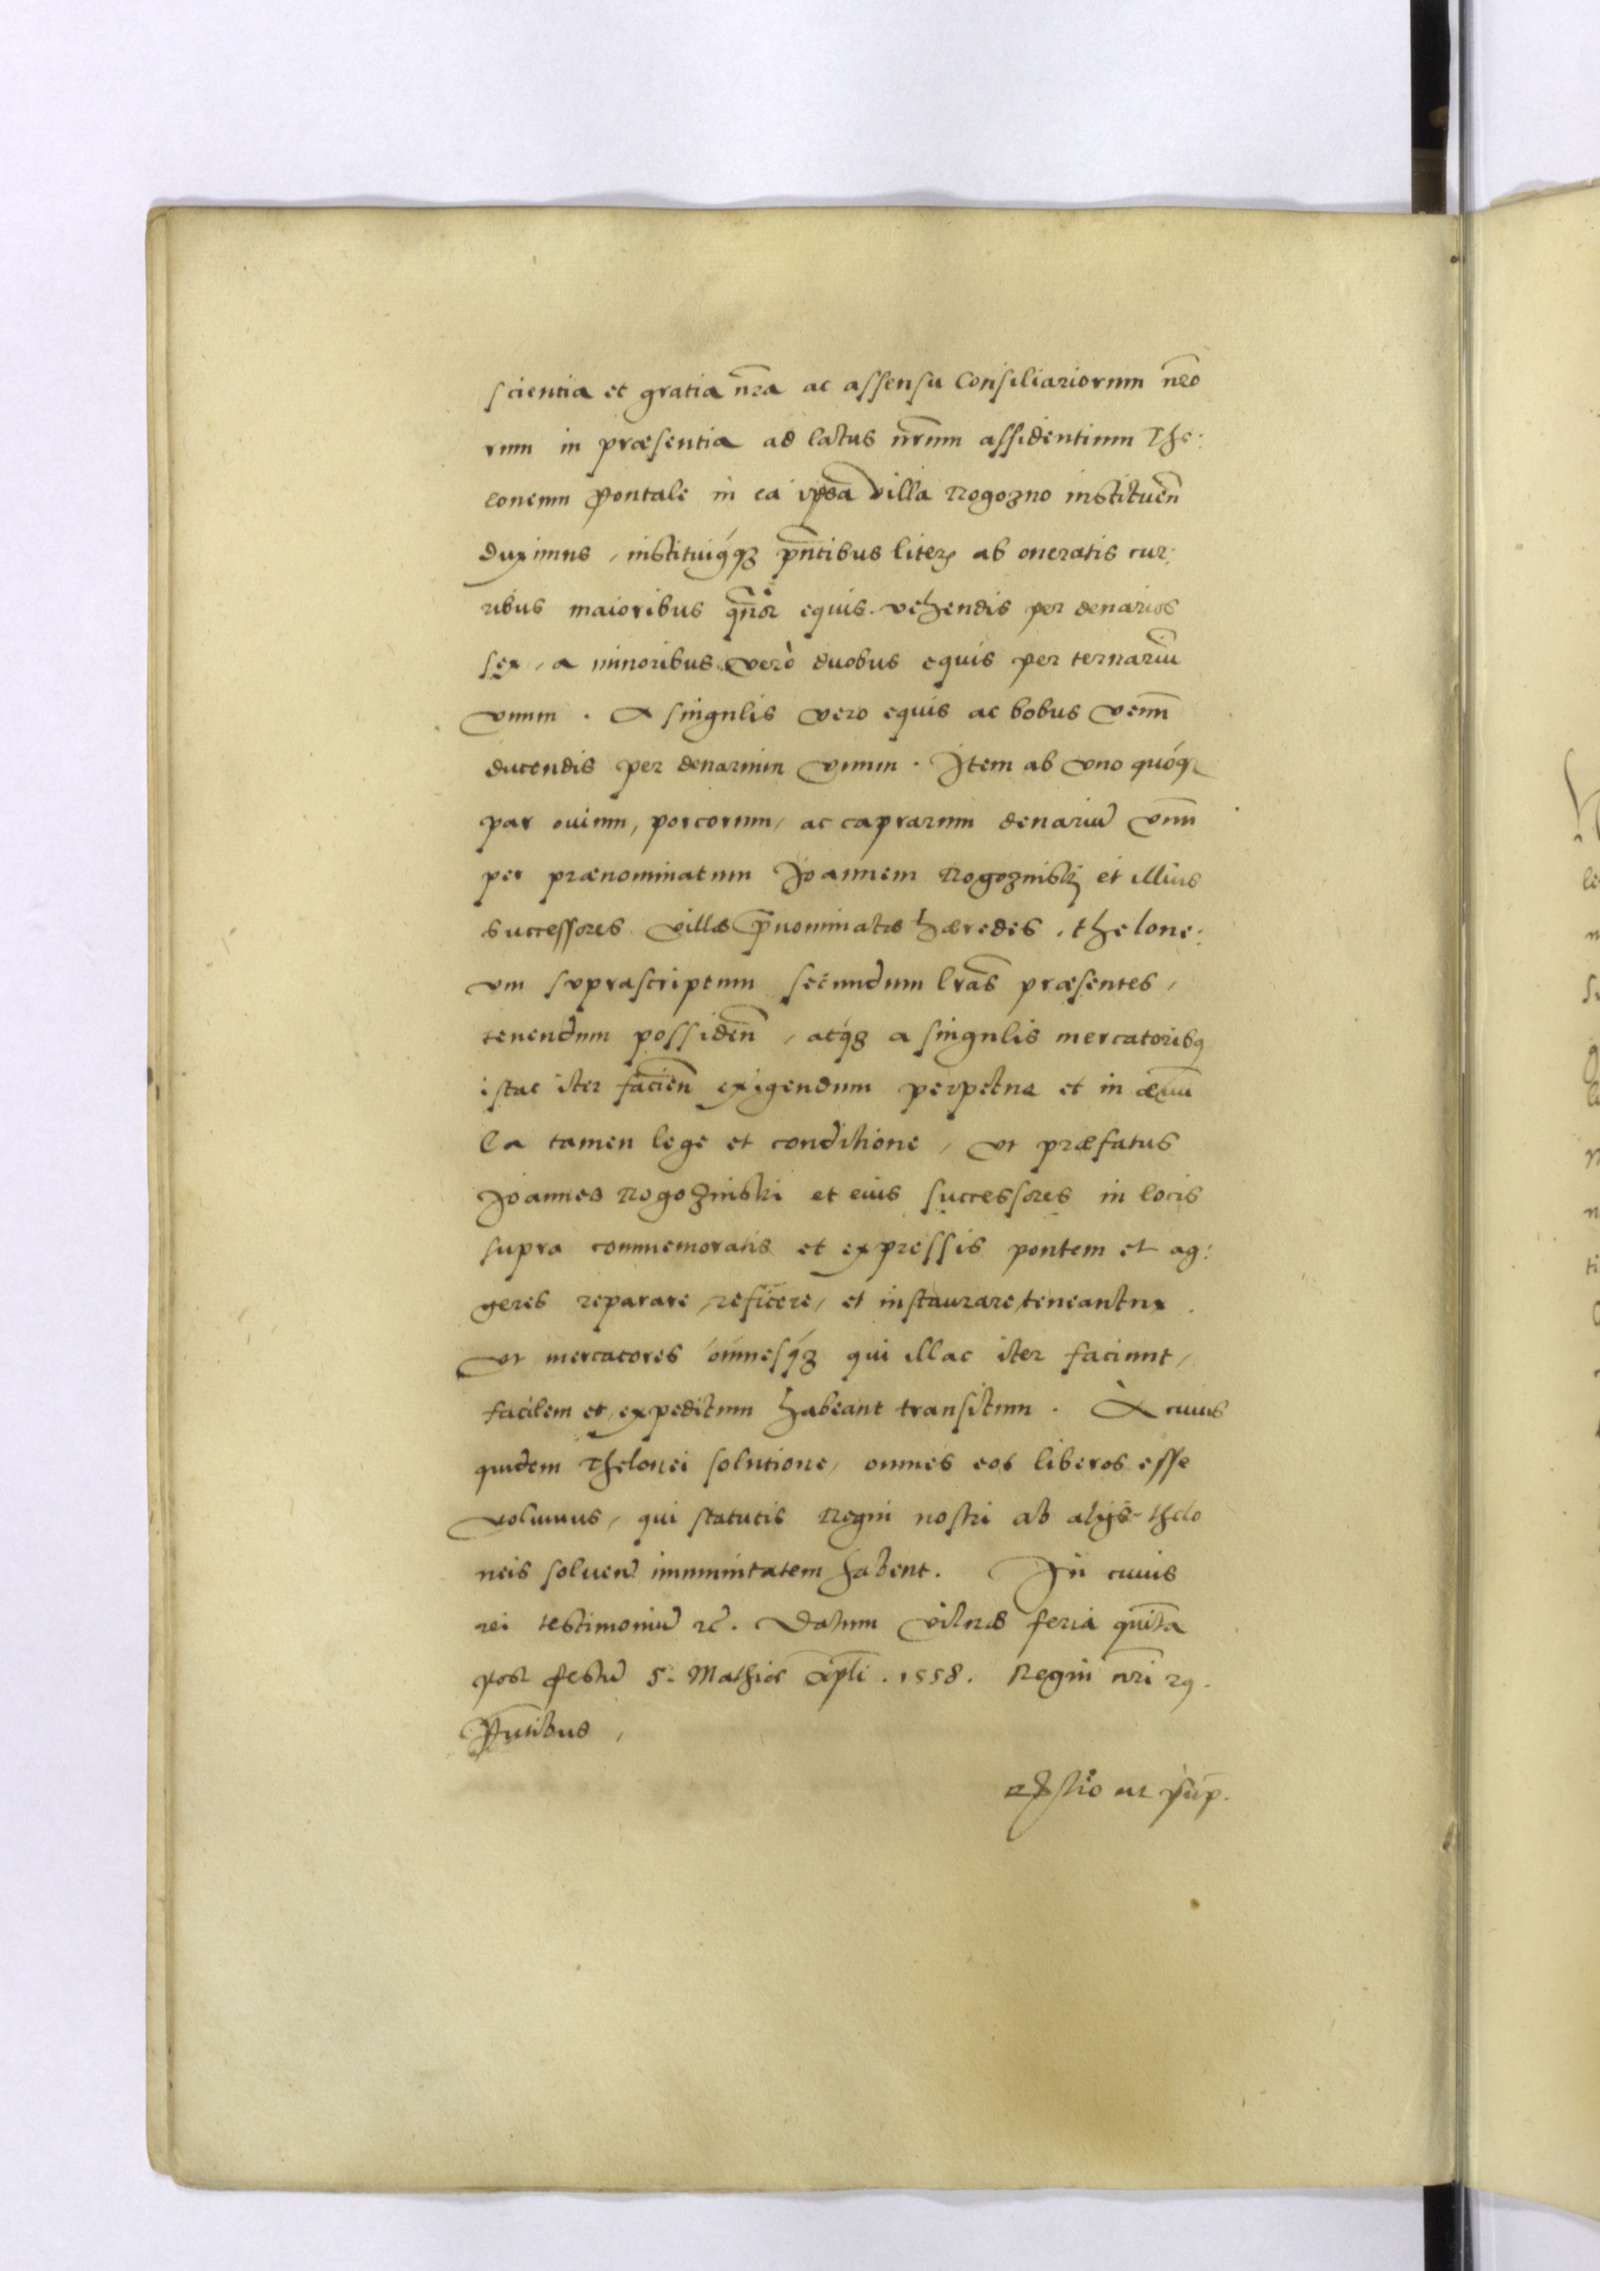 scientia et gratia nr̄a ac assensu Consiliariorum nr̄o
rum in præsentia ad latus nr̄um assidentium The:
loneum pontale in ea ip̄sa villa Rogozno instituen̄
duximus, instituiq́ꝫ pn̄tibus liter; ab oneratis cur:
ribus maioribus qu̅or equis vehendis per denarios
sex, a minoribus verò duobus equis per ternariū
vnum. A singulis vero equis ac bobus venum̄
ducendis per denarium vnum. Item ab vno quóq
par ouium, porcorum, ac caprarum denariū vnum̄
per prænominatum Joannem Rogoznisky et illius
successores villæ p̄nominatæ hæredes, thelone:
um suprascriptum secundum lr̄as præsentes,
tenendum possiden̄, atq́ꝫ a singulis mercatoribꝰ
istac iter facien̄ exigendum perpetue et in æuū
Ea tamen lege et conditione, vt præfatus
Joannes Rogoziński et eius successores in locis
supra commemoratis et expressis pontem et ag:
geres reparare, reficere, et instaurare teneantur.
vt mercatores omnesq́ꝫ qui illac iter faciunt,
facilem et expeditum habeant transitum. A cuius
quidem Thelonei solutione, omnes eos liberos esse
volumus, qui statutis Regni nostri ab alijs thelo
neis soluen̄ immunitatem habent. In cuius
rei testimoniū ꝛc̄. Datum Vilnæ feria quinta
post festū S. Mathiæ Ap̄li. 1558. Regni nr̄i ꝛꝰ.
Pn̄tibus,
ut sup̄.